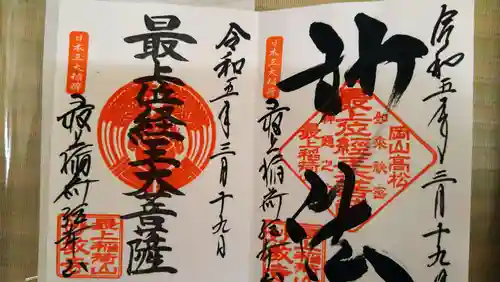 令和五年三月十九日
最上位経王大菩薩
日本三大稲荷
最上稲荷
最上稲荷山
令和五年三月十九日
妙法
岡山高松
最上位経王大菩薩
如来秘密
神通之力
最上稲荷
日本三大稲荷
最上稲荷